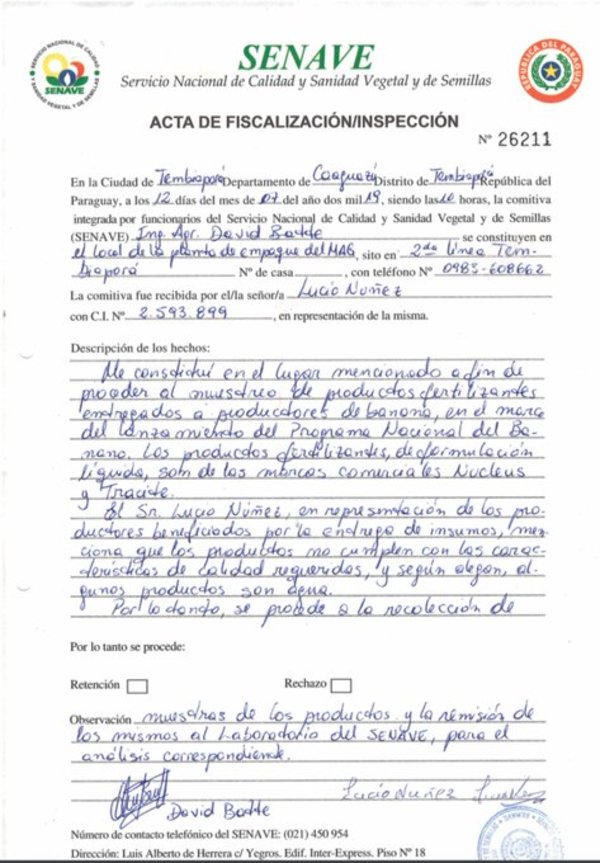 SERVICIO NACIONAL DE CALIDAD Y SANIDAD VEGETAL Y DE SEMILLAS
SENAVE
SENAVE
Servicio Nacional de Calidad y Sanidad Vegetal y de Semillas
REPUBLICA DEL PARAGUAY
ACTA DE FISCALIZACIÓN/INSPECCIÓN
Nº 26211
En la Ciudad de Tembiaporá Departamento de Caaguazú Distrito de Tembiaporá República del
Paraguay, a los 12 días del mes de 07 del año dos mil 19, siendo las 10 horas, la comitiva
integrada por funcionarios del Servicio Nacional de Calidad y Sanidad Vegetal y de Semillas
(SENAVE) Ing. Agr. David se constituyen en
el local de la planta de empaque del MAG, sito en 2da línea Tem-
biaporá Nº de casa , con teléfono Nº 0983-608662
La comitiva fue recibida por el/la señor/a Lucio Nuñez
con C.I. Nº 2.593.899 , en representación de la misma.
Descripción de los hechos:
Me constituí en el lugar mencionado a fin de
proceder al muestreo de productos fertilizantes
entregados a productores de banana, en el marco
del lanzamiento del Programa Nacional del Ba-
nano. Los productos fertilizantes, de formulación
líquida, son de las marcas comerciales Nucleus
y
El Sr. Lucio Núñez, en representación de los pro-
ductores beneficiados por la entrega de insumos, men-
ciona que los productos no cumplen con las carac-
terísticas de calidad requeridas, y según alegan, al-
gunos productos son agua.
Por lo tanto, se procede a la recolección de
Por lo tanto se procede:
Retención
Rechazo
Observación muestras de los productos y la remisión de
los mismos al Laboratorio del SENAVE, para el
análisis correspondiente.
David
Lucio Nuñez
Número de contacto telefónico del SENAVE: (021) 450 954
Dirección: Luis Alberto de Herrera c/ Yegros. Edif. Inter-Express. Piso Nº 18